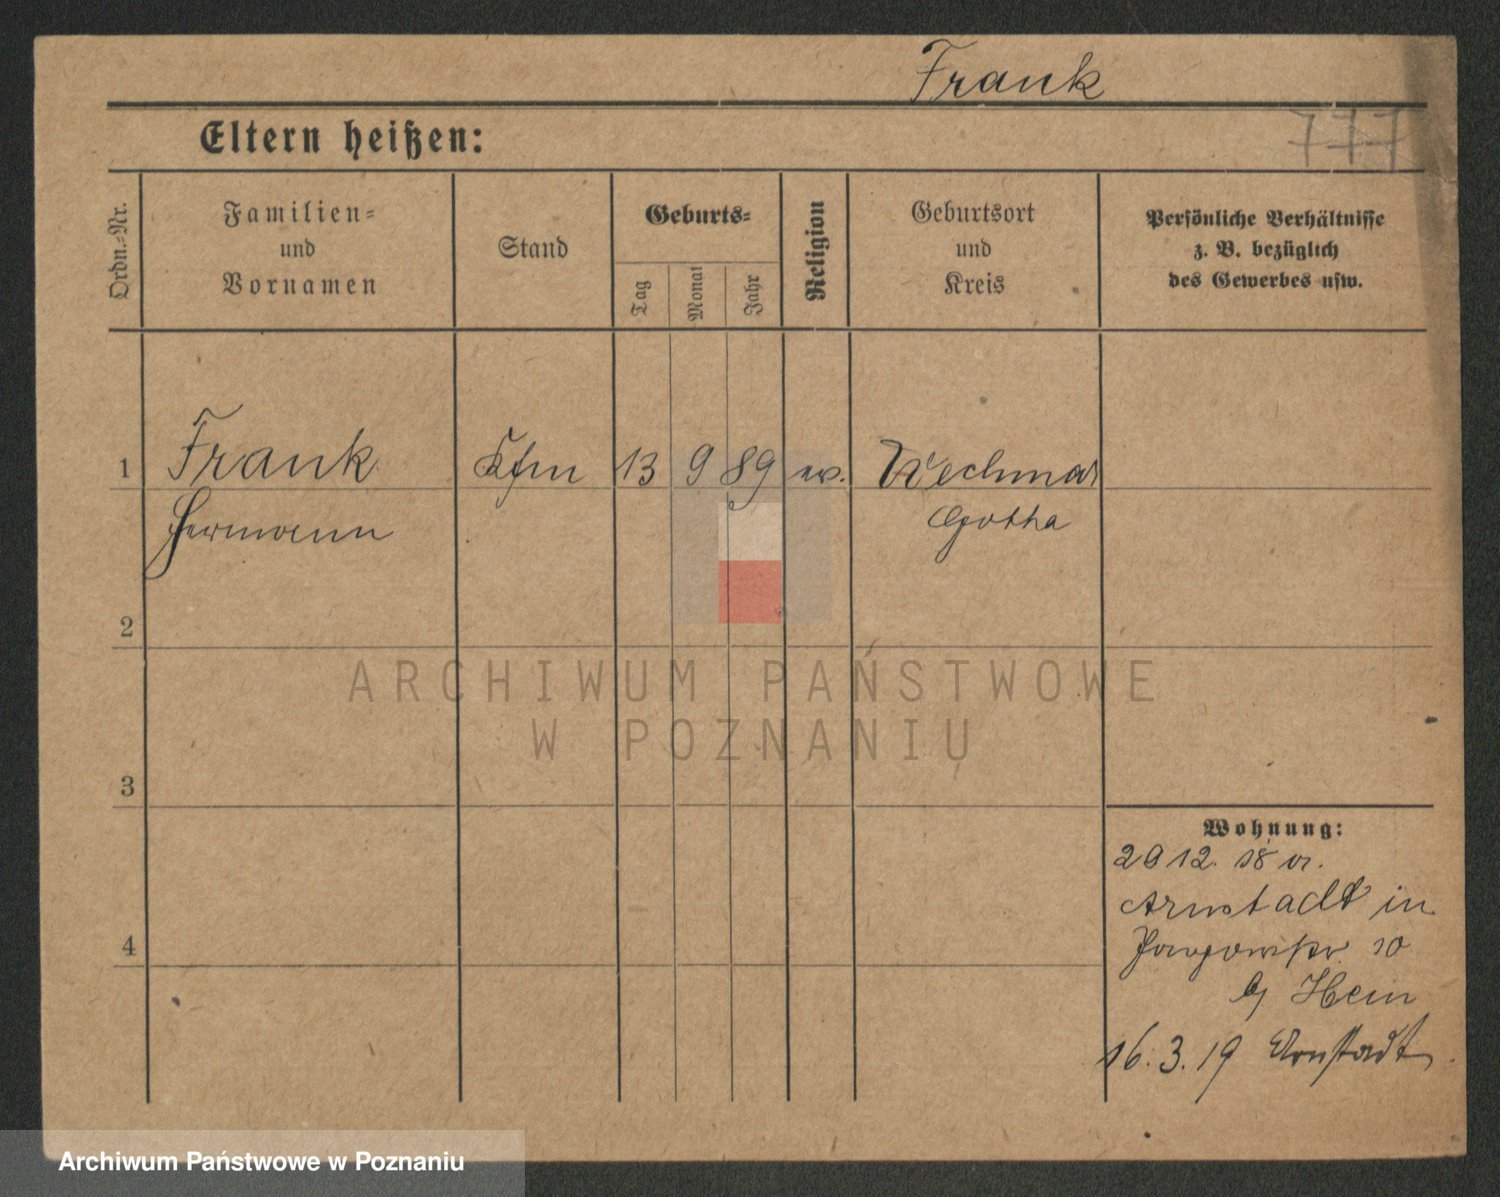 Frank
777
Eltern heißen:
Ordn.-Nr.
Familien-
und
Vornamen
Stand
Geburts-
Tag
Monat
Jahr
Religion
Geburtsort
und
Kreis
Persönliche Verhältnisse
z. B. bezüglich
des Gewerbes usw.
1
Frank Kfm 13 9 89 ev. Wechmar
Hermann Gotha
2
3
4
Wohnung:
29 12. 18 v.
Arnstadt in
10
b/ Hein
16. 3. 19 Arnstadt
ARCHIWUM PAŃSTWOWE
W POZNANIU
Archiwum Państwowe w Poznaniu